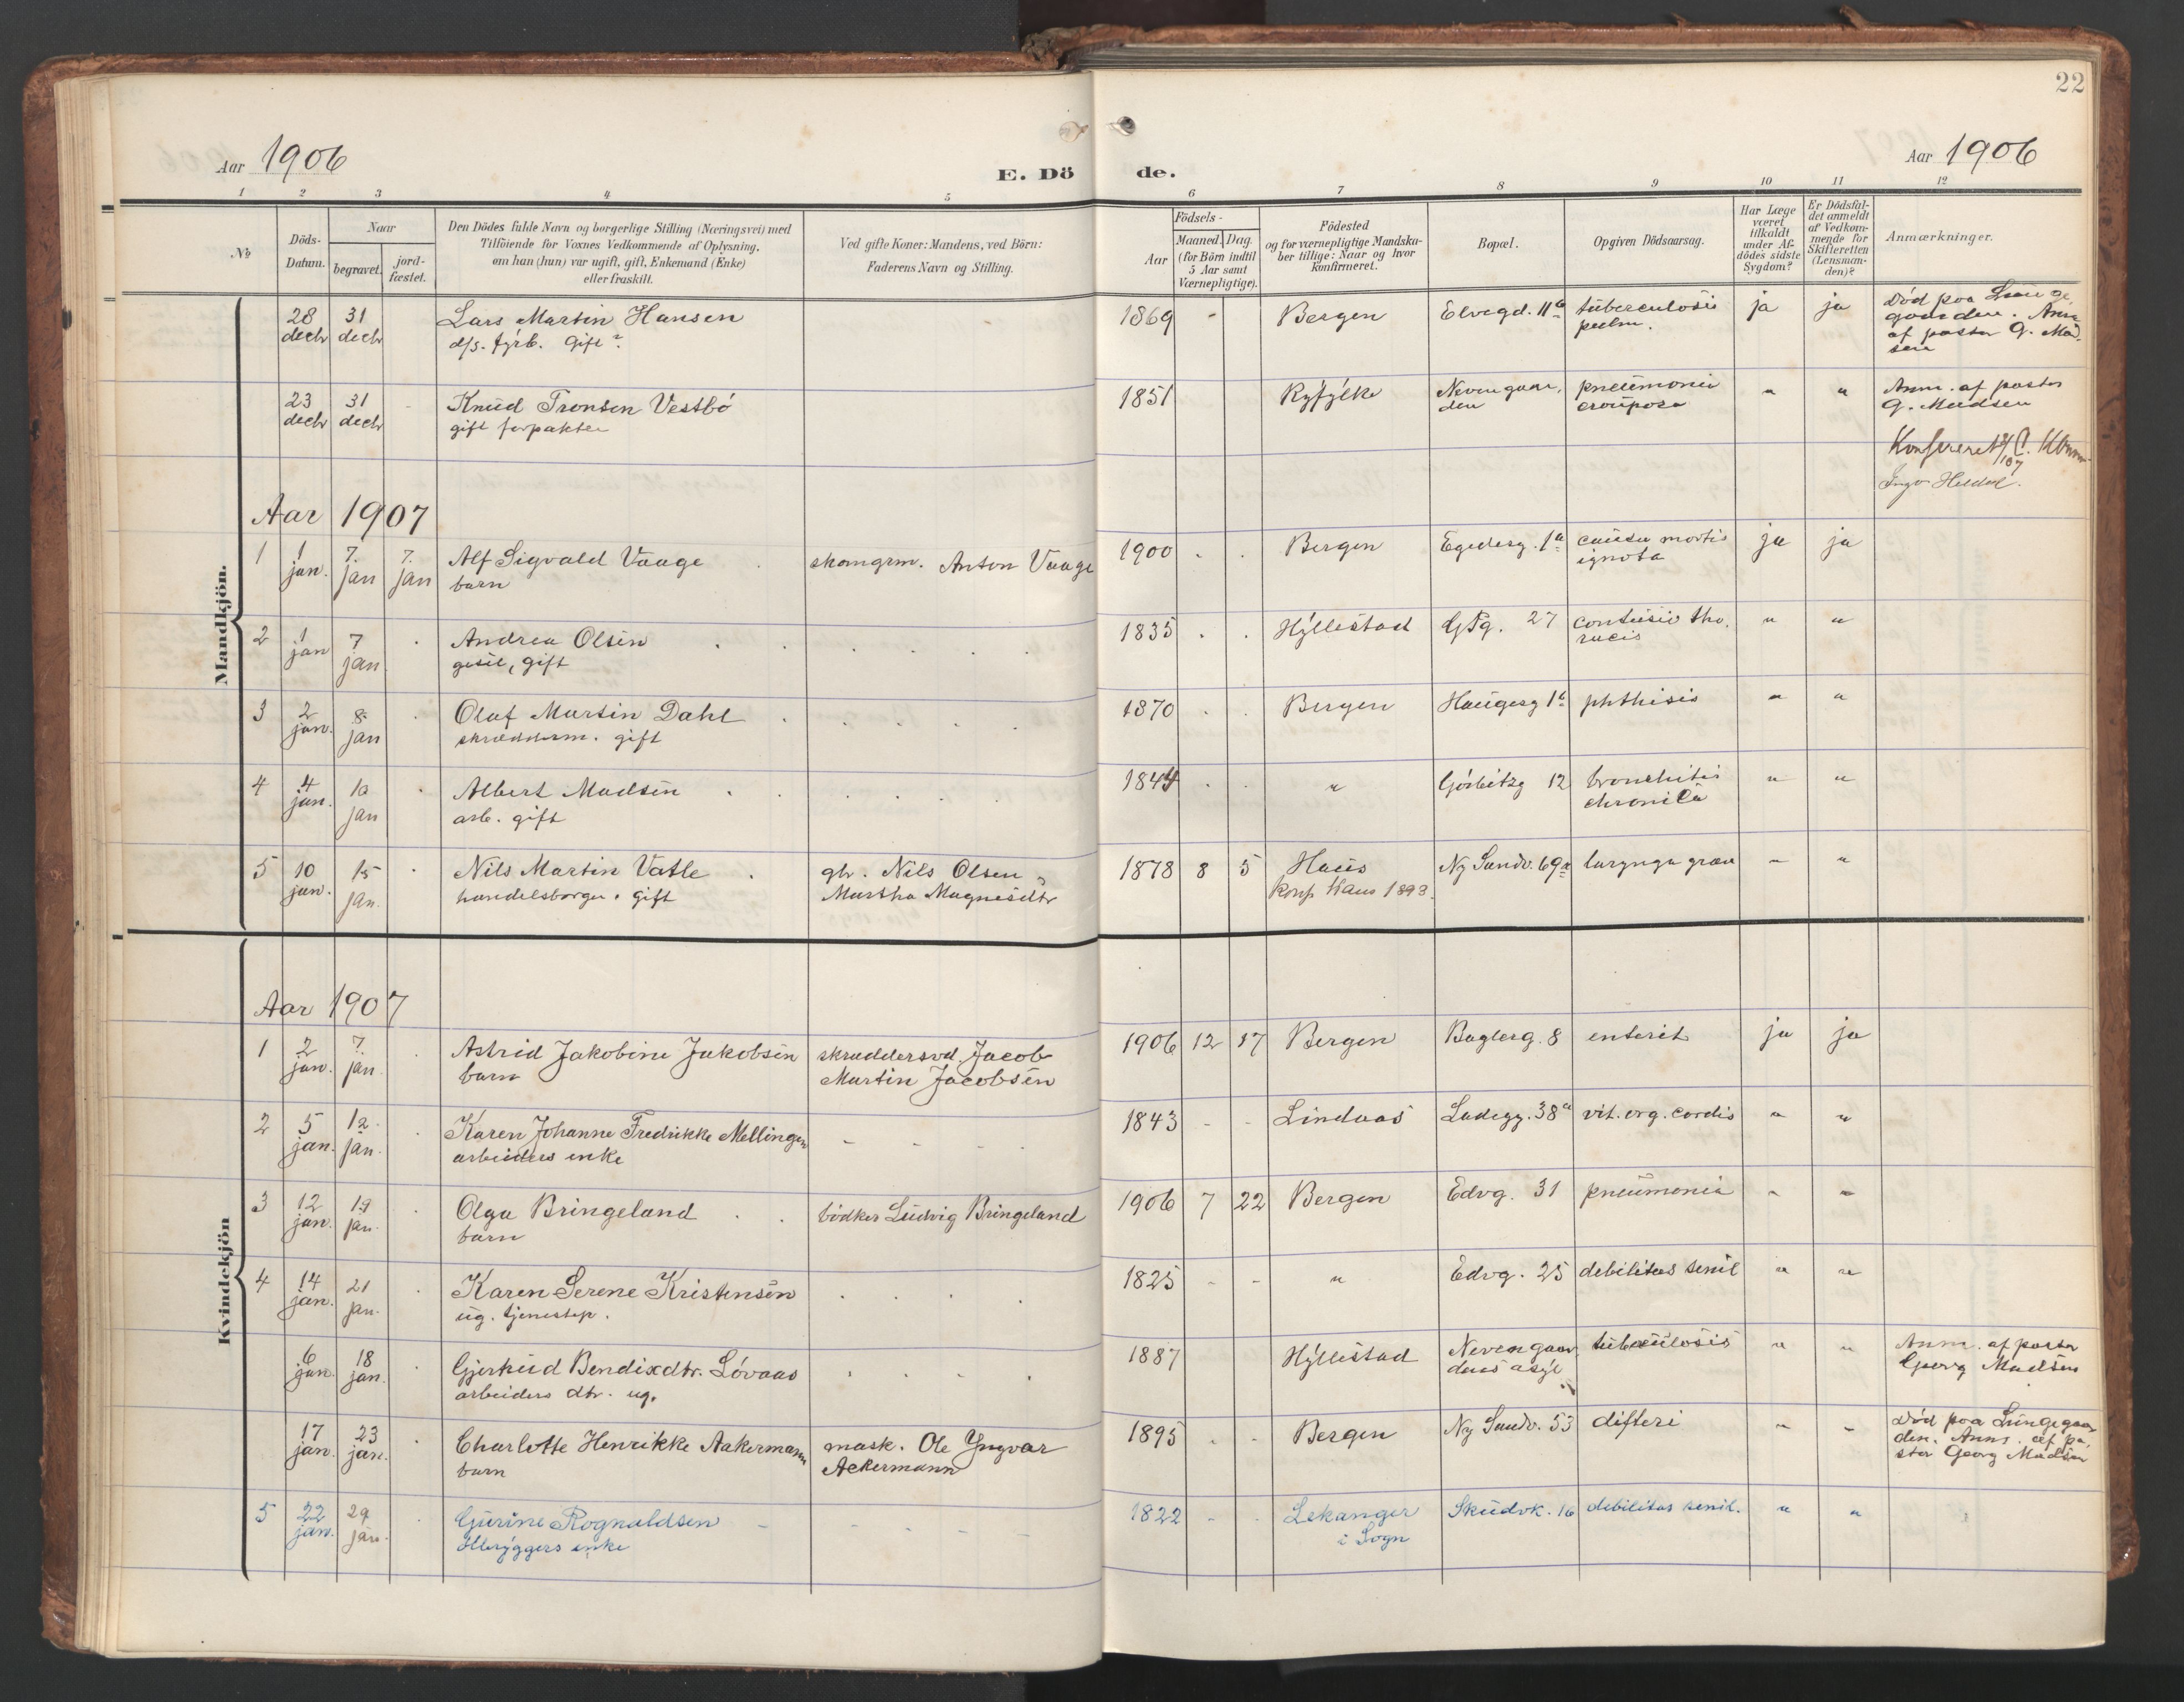 22
Aar 1906
E. Dö de.
Aar 1906
1 2 3 4 5 6 7 8 9 10 11 12
№
Döds-Datum.
Naar
begravet.
jord-fæstet.
Den Dödes fulde Navn og borgerlige Stilling (Næringsvei) med
Tilföiende for Voxnes Vedkommende af Oplysning,
om han (hun) var ugift, gift, Enkemand (Enke)
eller fraskilt.
Ved gifte Koner: Mandens, ved Börn:
Faderens Navn og Stilling.
Födsels-
Aar
Maaned. Dag.
(for Börn indtil
5 Aar samt
Værnepligtige).
Födested
og for værnepligtige Mandska-
ber tillige: Naar og hvor
konfirmeret.
Bopæl.
Opgiven Dödsaarsag.
Har Læge
været
tilkaldt
under Af-
dödes sidste
Sygdom?
Er Dödsfal-
det anmeldt
af Vedkom-
mende for
Skifteretten
(Lensman-
den)?
Anmærkninger.
Mandkjön.
28 31 Lars Martin Hansen 1869 - Bergen Elvegd. 11a tuberculosis ja ja Död paa Lunge
decbr decbr d/s. fyrb. Gift pulm. gaarden. Anm
af pastor G. Mad-
sen
23 31 - Knud Tronsen Vestbö 1851 Ryfylke Nevengaar, pneumonia " " Anm. af pastor
decbr decbr gift forpakter den crouposa G. Madsen
Konfereret
Aar 1907
1 1 7. 7. Alf Sigvald Vaage skomgrm. Anton Vaage 1900 Bergen Egedesg. 1a causa mortis ja ja
jan. jan jan barn ignota
2 1 7 Andrea Olsen 1835 Hyllestad 27 contusio tho, " "
jan jan gesel, gift racis
3 2 8 Olaf Martin Dahl 1870 Bergen Haugesg 1b phthisis " "
jan. jan skrædderm. gift
4 4 10 Albert Madsen 1844 " Görbitzg 12 bronchitis " "
jan. jan arb. gift chronica
5 10 15 Nils Martin Vatle gbr. Nils Olsen 1878 8 5 Haus Ny Sandv. 69a " "
jan. jan. handelsborger. gift Martha Magnesdtr konf. Haus 1893.
Kvindekjön
Aar 1907
1 2 7. Astrid Jakobine Jakobsen skræddersvd. Jacob 1906 12 17 Bergen Baglerg. 8 enterit ja ja
jan. jan. barn Martin Jacobsen
2 5 12 Karen Johanne Fredrikke Mellingen - - 1843 - - Lindaas Ladegg. 38a vit. org. cordis " "
jan. jan. arbeiders enke
3 12 19 Olga Bringeland bödker Ludvig Bringeland 1906 7 22 Bergen Edvg. 31 pneumonia " "
jan. jan. barn
4 14 21 Karen Serene Kristensen 1825 - - " Edvg. 25 debilitas senil " "
jan. jan. ug. tjenestep.
6 18 Gjertrud Bendixdtr. Lövaas 1887 Hyllestad Nevengaar tuberculosis " " Anm. af pastor
jan. jan. arbeiders dtr. ug. dens asyl Georg Madsen
17 23 Charlotte Henrikke Aakermann mask. Ole Yngvar 1895 Bergen Ny Sandv. 53 difteri " - Död paa Lungegaar
jan. jan. barn Ackermann den. Anm. af pa,
stor Georg Madsen
5 22 29 Gurine Rognaldsen - - 1822 - Lekanger Skudvk. 16 debilitas senil. " "
jan. jan. ölbryggers enke i Sogn